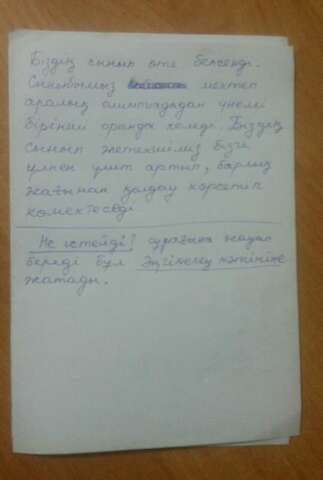 Біздің сынып өте белсенді.
Сыныбымыз мектеп
аралық олимпиададан үнемі
бірінші орынды келеді. Біздің
сынып жетекшіміз бізге
үлкен үміт артып, барлық
жағынан қолдау көрсетіп
көмектеседі
Не істейді? сұрағына жауап
береді бұл жатады.